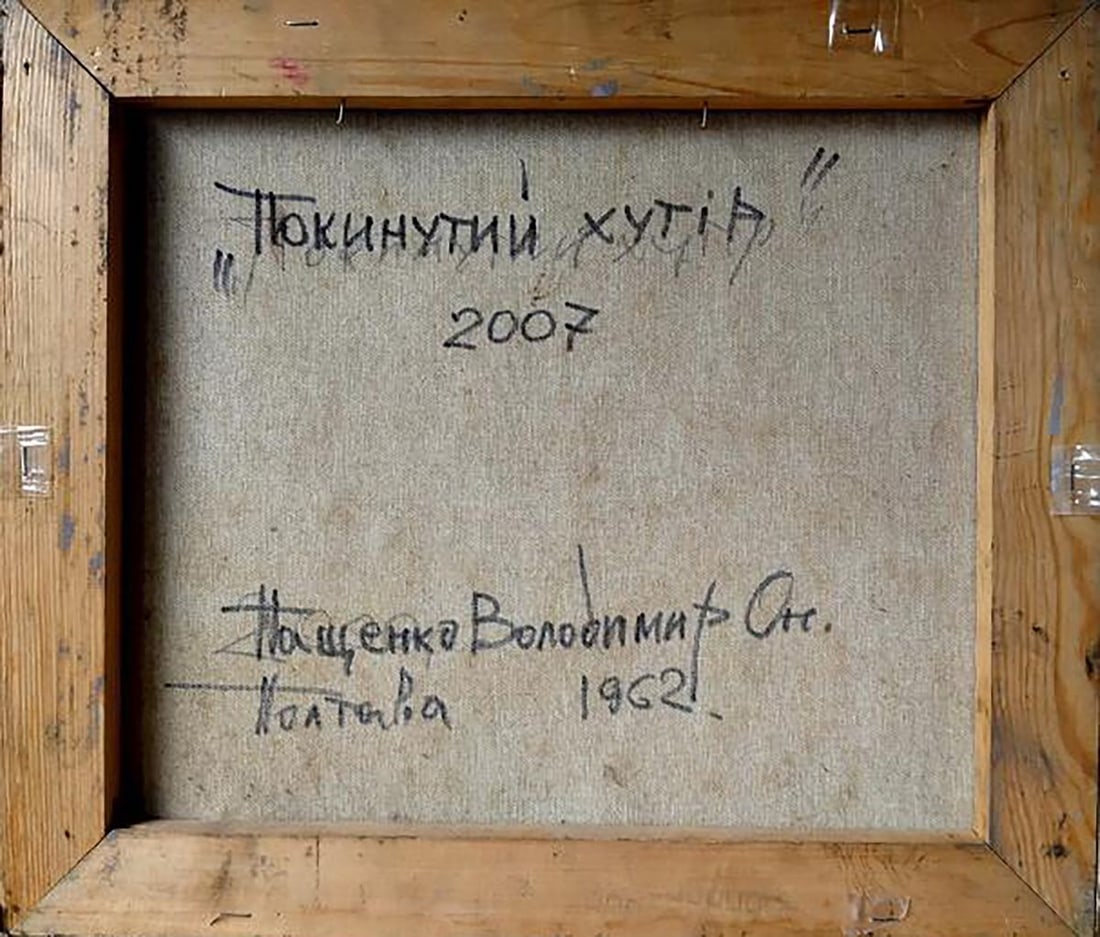 „Покинутий хутір"
2007
Пащенко Володимир Он.
Полтава 1962.